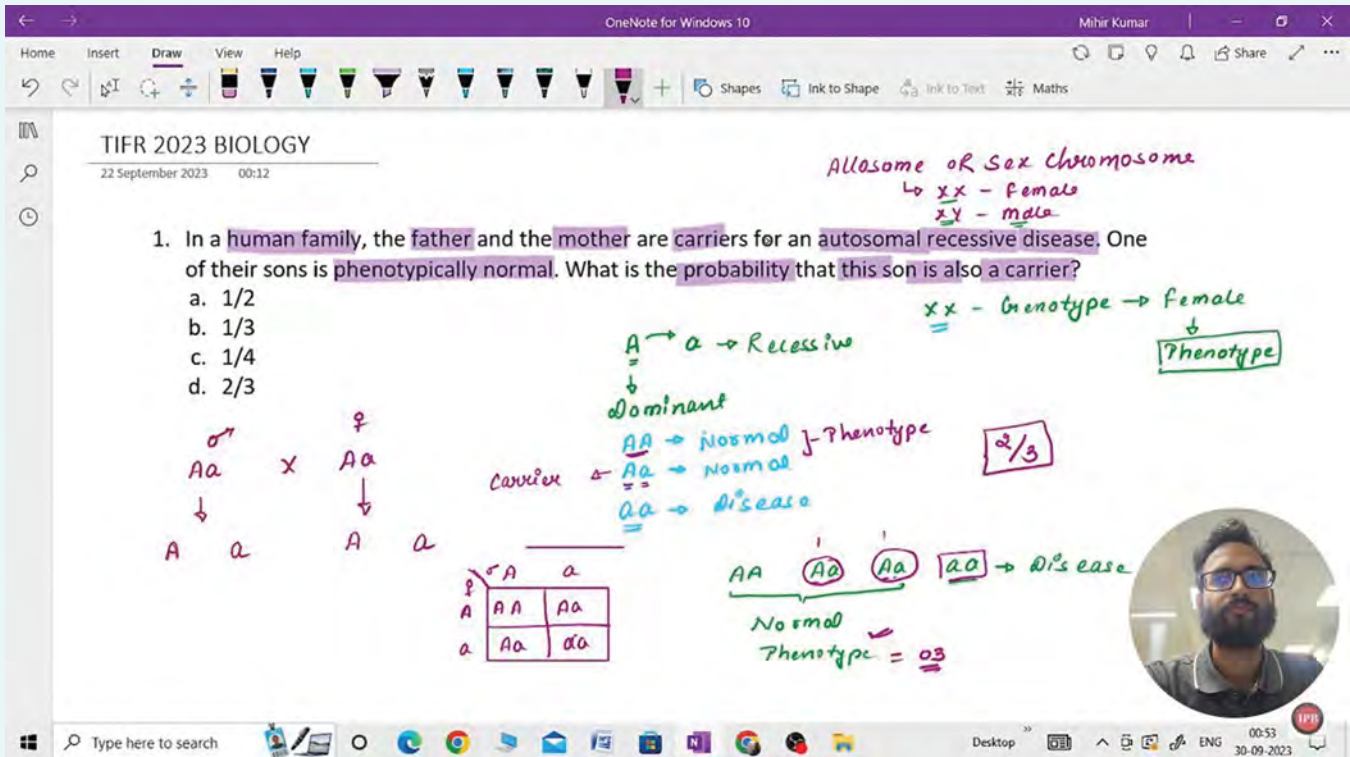 OneNote for Windows 10
Mihir Kumar
Home Insert Draw View Help
Share
Shapes Ink to Shape Ink to Text Maths
TIFR 2023 BIOLOGY
22 September 2023 00:12
Allosome OR Sex Chromosome
↳ XX - Female
XY - male
1. In a human family, the father and the mother are carriers for an autosomal recessive disease. One
of their sons is phenotypically normal. What is the probability that this son is also a carrier?
a. 1/2
b. 1/3
c. 1/4
d. 2/3
XX - Genotype → Female
↓
Phenotype
A → a → Recessive
↓
Dominant
AA → Normal ]- Phenotype
Carrier ← Aa → Normal
aa → Disease
2/3
♂ ♀
Aa X Aa
↓ ↓
A a A a
♂ A a
♀
A AA Aa
a Aa aa
1 1
AA Aa Aa aa → Disease
Normal
Phenotype = 03
IPB
Type here to search
Desktop
ENG
00:53
30-09-2023